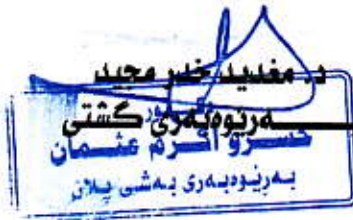 د. مغدید خدر مجید
بەڕێوەبەری گشتی
خسرو اکرم عثمان
بەڕێوەبەری بەشی پلان